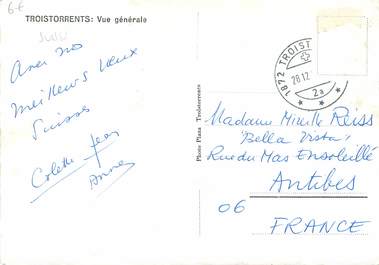 6€
TROISTORRENTS: Vue générale
SUISSE
Avec nos
meilleurs vœux
Suisses
Colette Jean
Anne
Photo Plana Troistorrents
1872 TROIST
28.12
2a
Madame Mireille Reiss
"Bella Vista"
Rue du Mas Ensoleillé
Antibes
06
FRANCE